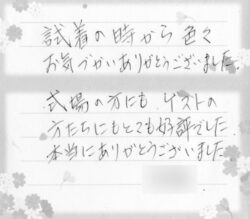 試着の時から色々
お気づかいありがとうございました
式場の方にも ゲストの
方たちにもとても好評でした
本当にありがとうございました